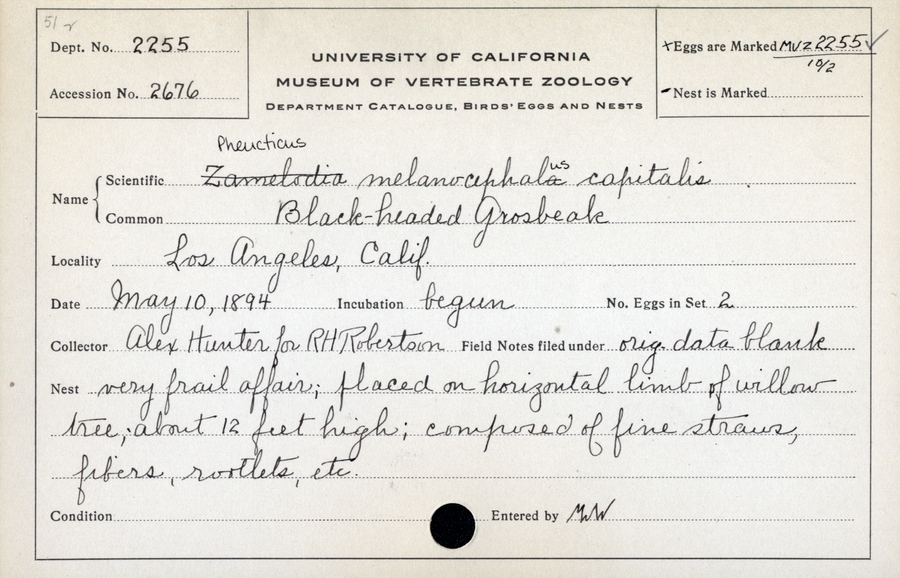 51
Dept. No. 2255
Accession No. 2676
UNIVERSITY OF CALIFORNIA
MUSEUM OF VERTEBRATE ZOOLOGY
DEPARTMENT CATALOGUE, BIRDS' EGGS AND NESTS
+Eggs are Marked MVZ 2255 ✓
10/2
-Nest is Marked
Pheucticus
Name
Scientific Zamelodia melanocephala us capitalis
Common Black-headed Grosbeak
Locality Los Angeles, Calif.
Date May 10, 1894 Incubation begun No. Eggs in Set 2
Collector Alex Hunter for RH Robertson Field Notes filed under orig. data blank
Nest very frail affair; placed on horizontal limb of willow
tree; about 12 feet high; composed of fine straws,
fibers, rootlets, etc.
Condition Entered by MW